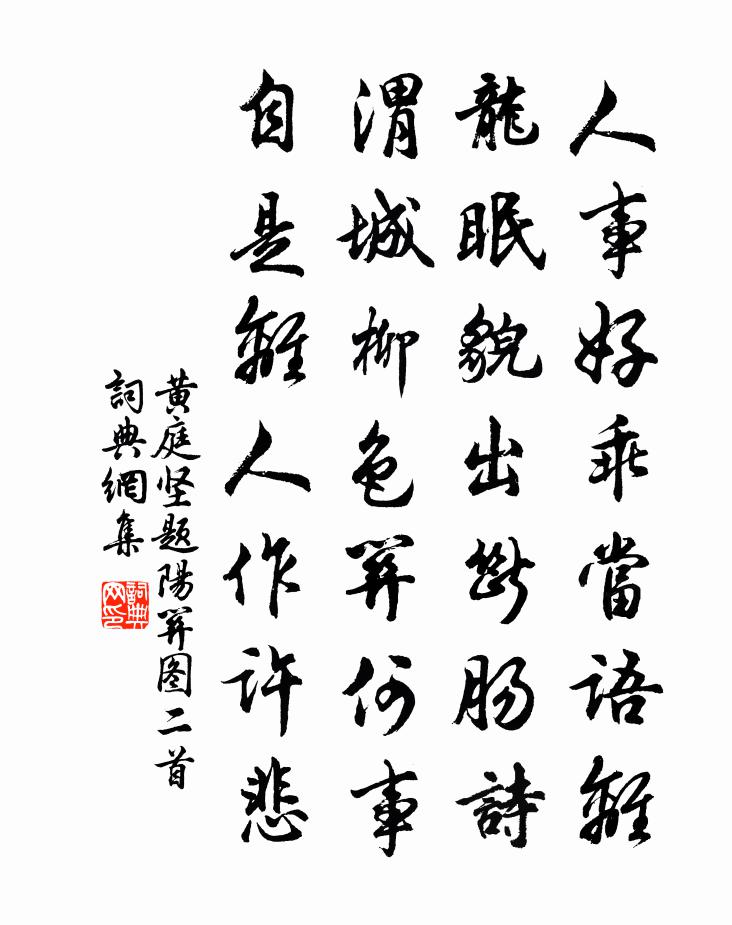 人事好乖當語離
龍眠貌出斷腸詩
渭城柳色關何事
自是離人作許悲
黄庭坚题陽關图二首
詞典網集
詞典網印